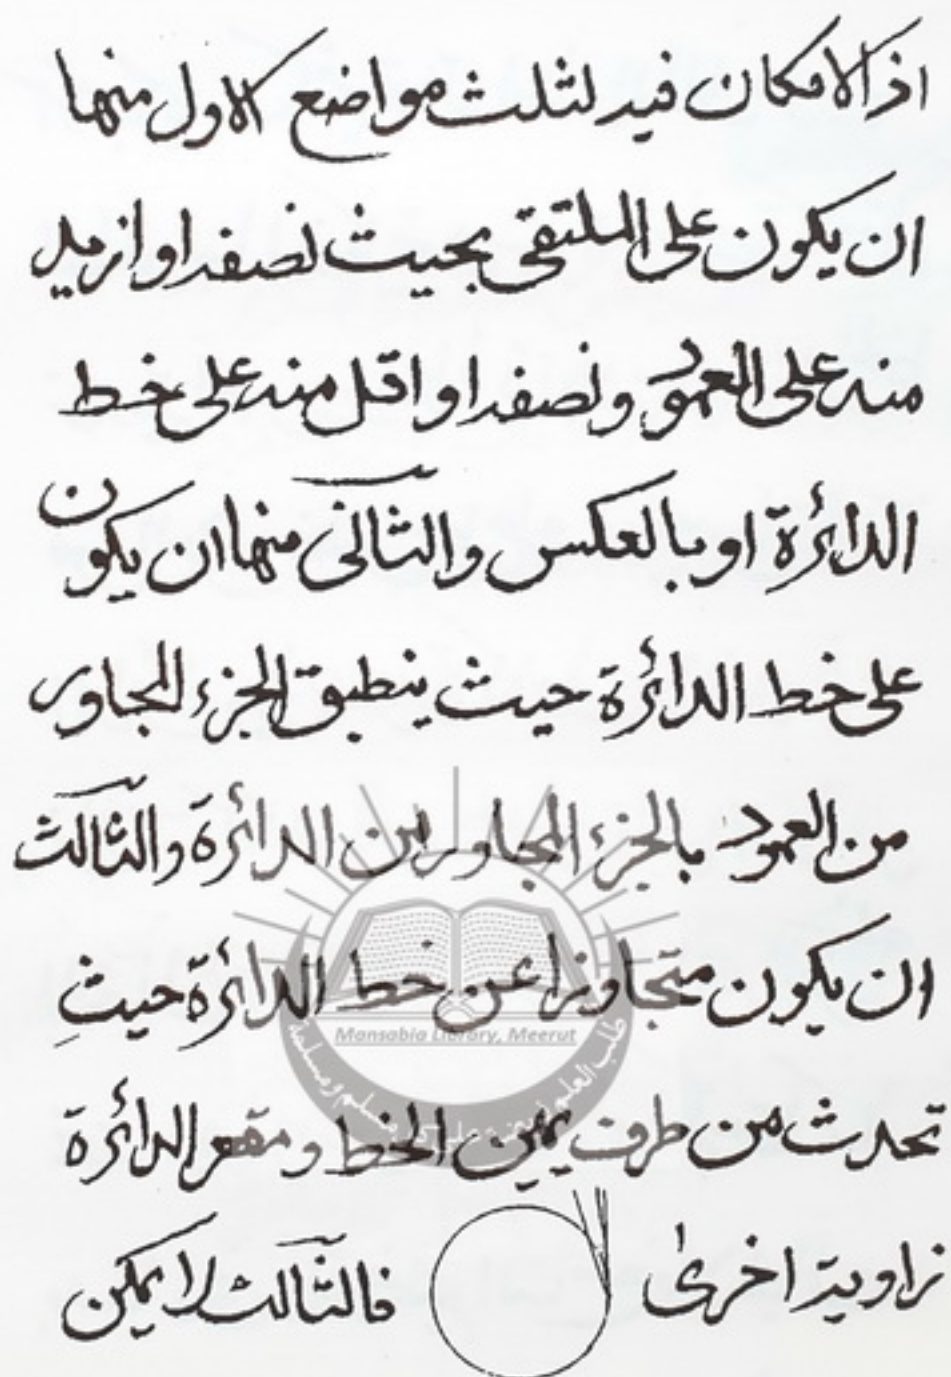 اذ الامكان فيه لثلث مواضع الاول منها
ان يكون على الملتقى بحيث نصفه او ازيد
منه على العمود ونصفه او اقل منه على خط
الدائرة او بالعكس والثانى منها ان يكون
على خط الدائرة حيث ينطبق الجزء المجاور
من العمود بالجزء المجاور من الدائرة والثالث
ان يكون متجاوزا عن خط الدائرة حيث
Mansabia Library, Meerut
تحدث من طرف يمين الخط ومقعر الدائرة
زاوية اخرى فالثالث لا يمكن